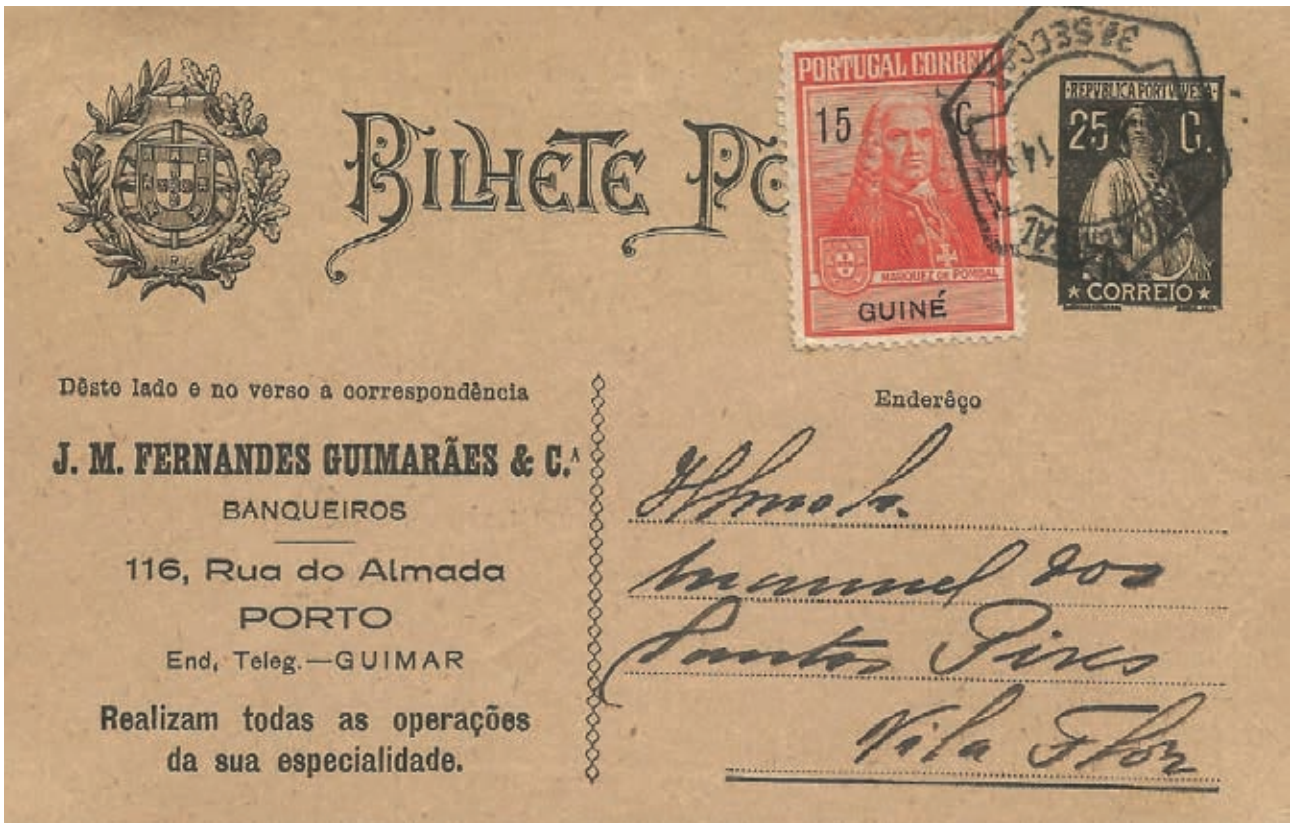 BILHETE PO
PORTUGAL CORREIO
15 C.
MARQUEZ DE POMBAL
GUINÉ
3ª SECÇÃO
14
REPUBLICA PORTUGUESA
25 C.
CORREIO
Dêste lado e no verso a correspondência
J. M. FERNANDES GUIMARÃES & C.ᴬ
BANQUEIROS
116, Rua do Almada
PORTO
End. Teleg.—GUIMAR
Realizam todas as operações
da sua especialidade.
Enderêço
Manuel dos
Santos Pires
Vila Flor